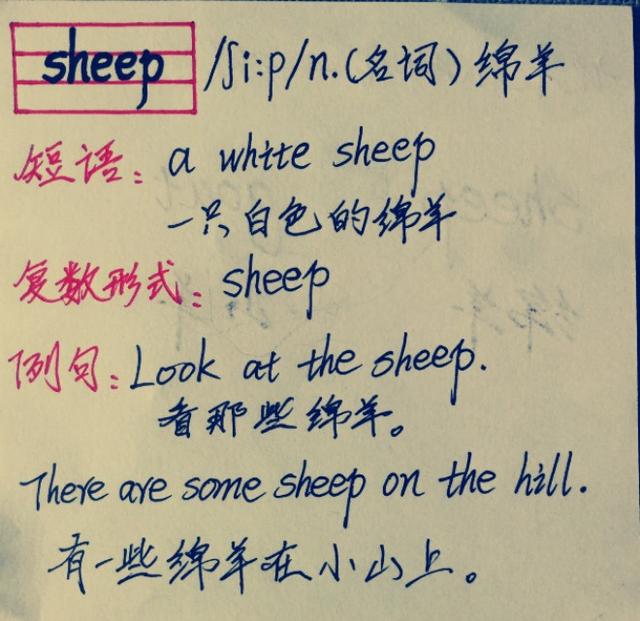 sheep /ʃi:p/n.(名词)绵羊
短语: a white sheep
一只白色的绵羊
复数形式: sheep
例句: Look at the sheep.
看那些绵羊。
There are some sheep on the hill.
有一些绵羊在小山上。